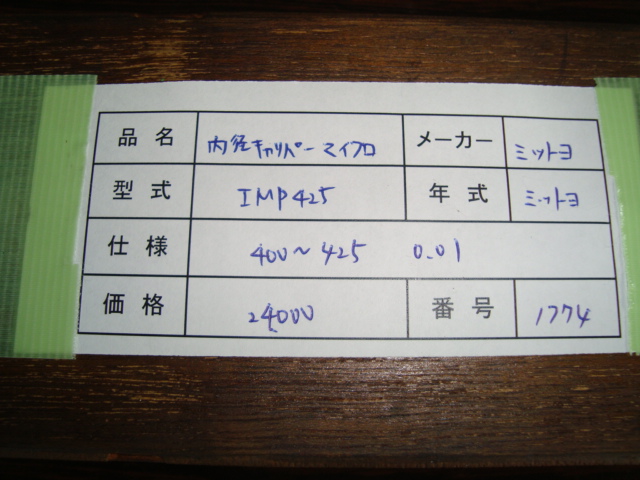 品名 内径キャリパーマイクロ メーカー ミットヨ
型式 IMP425 年式 ミットヨ
仕様 400～425 0.01
価格 24000 番号 1774